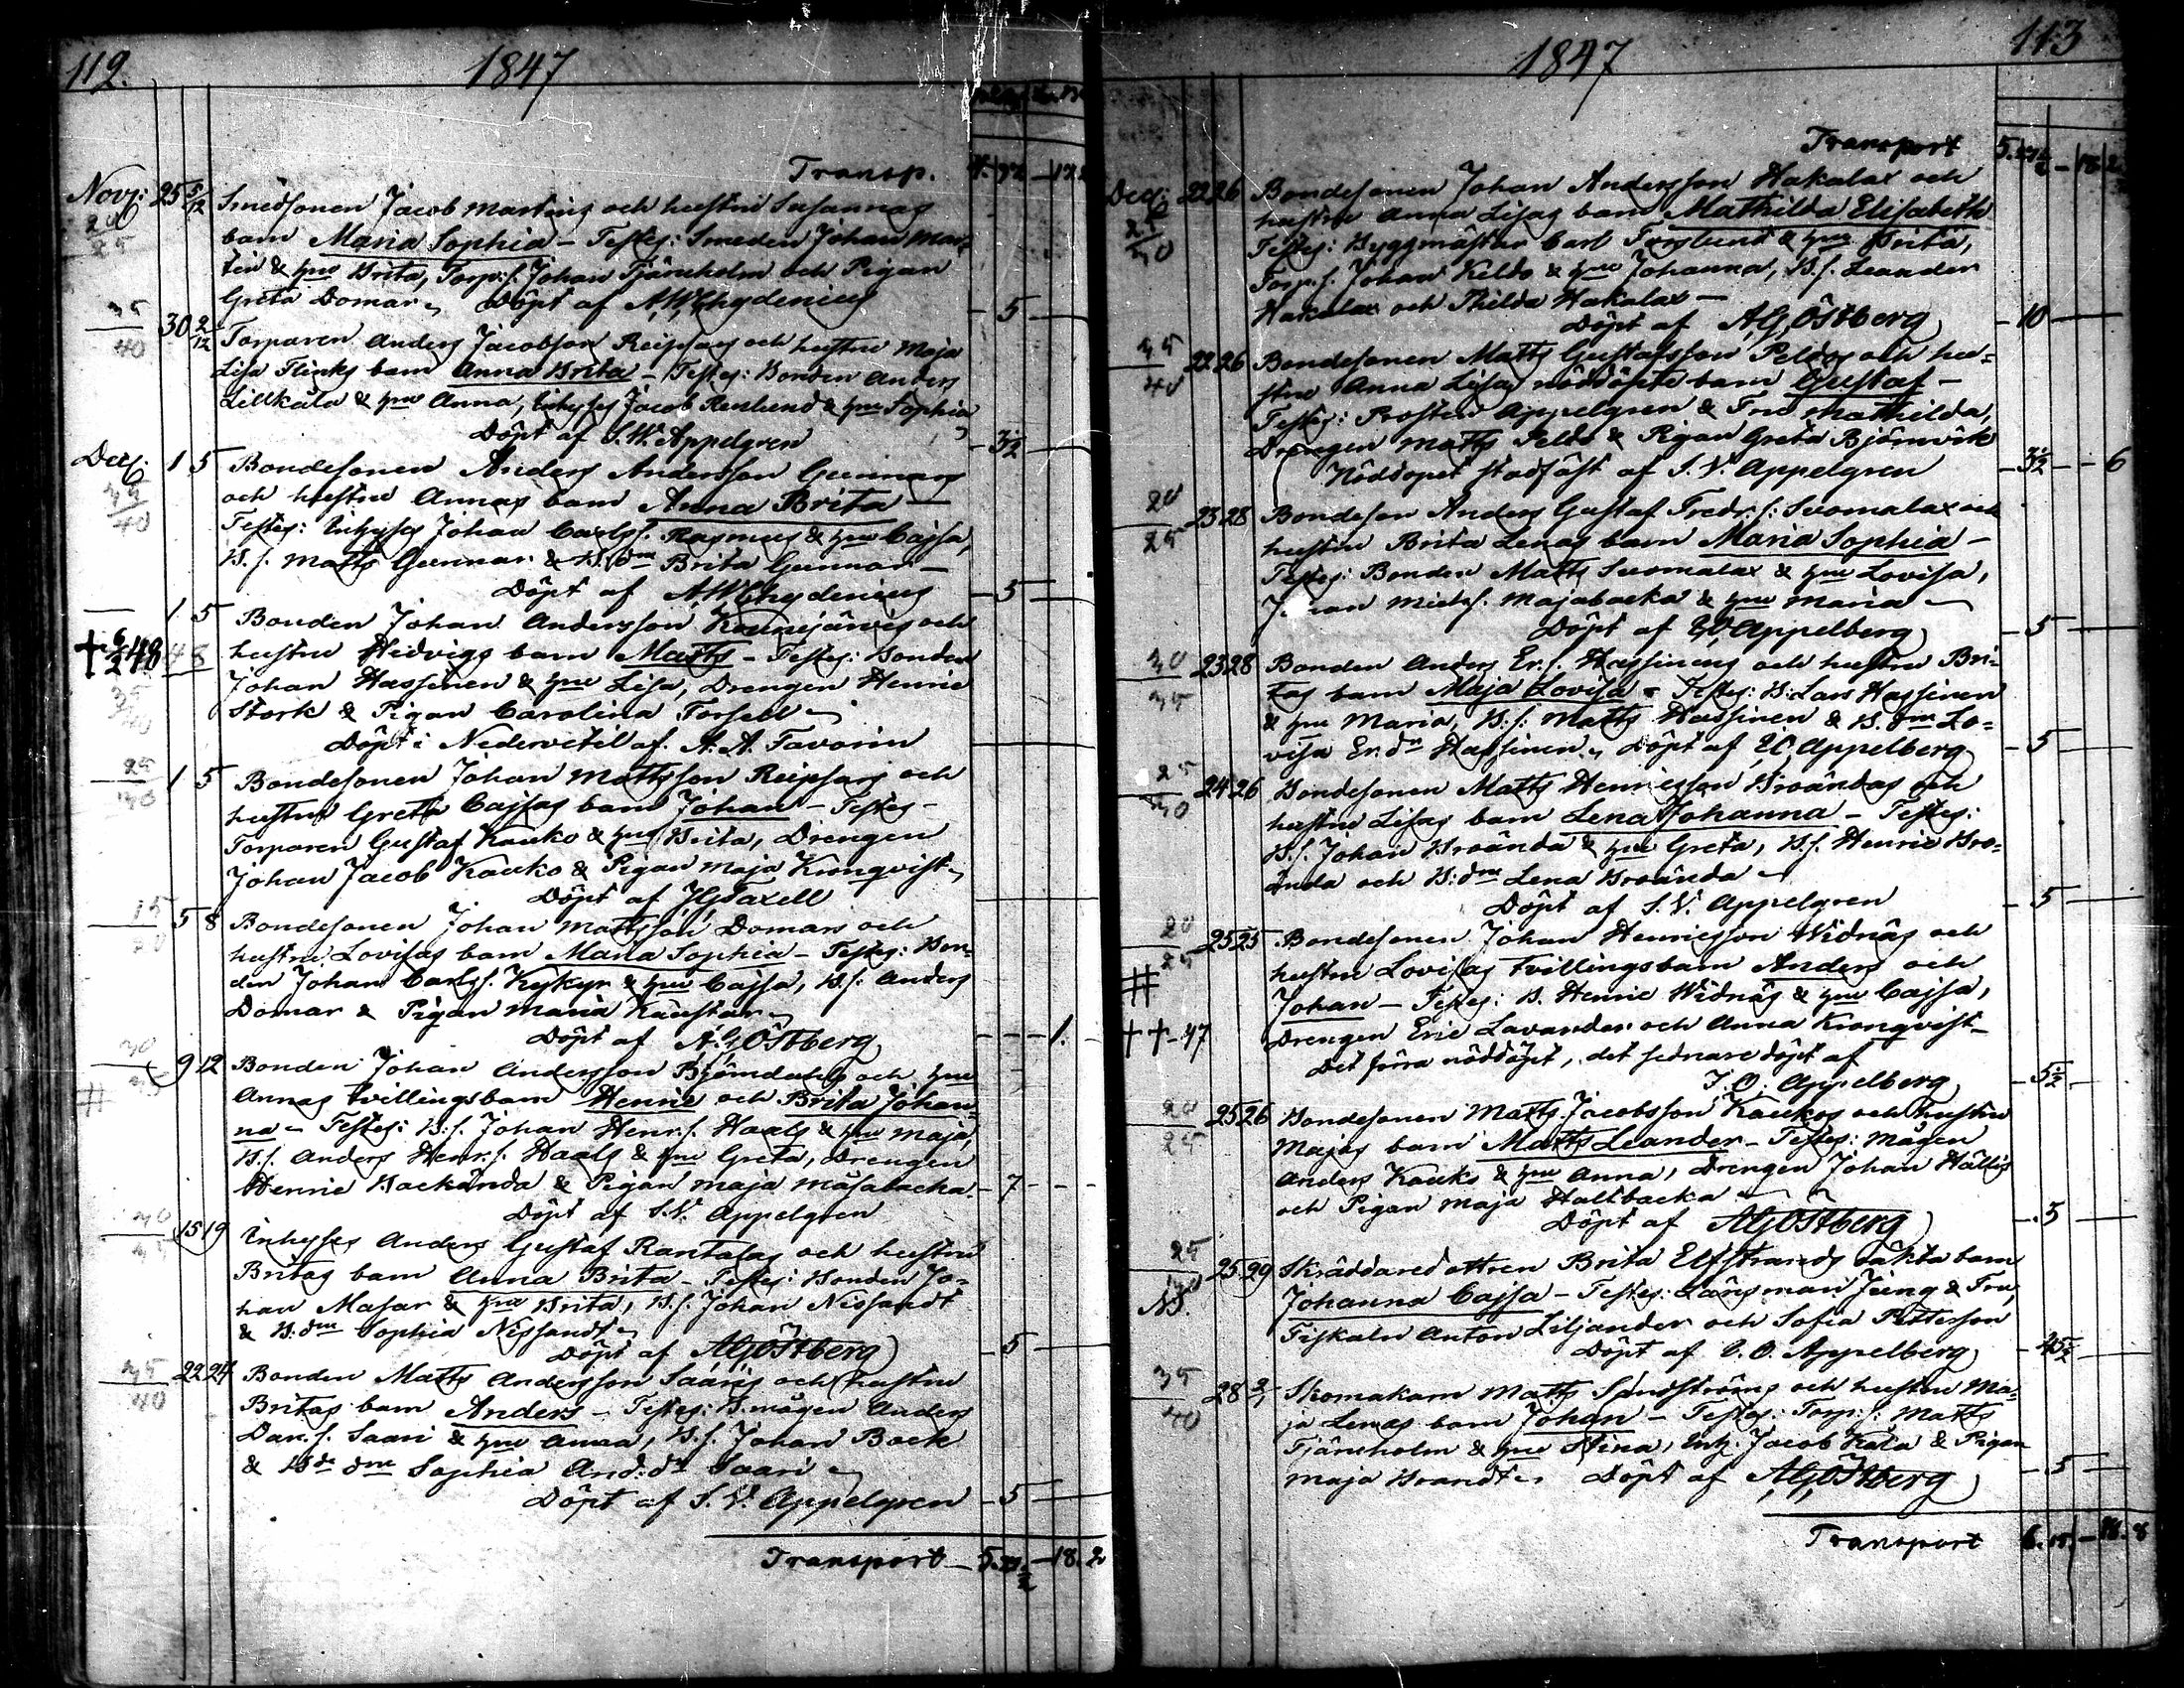 112.
1847
Transp.
Novb: 25 5/12 Smedsonen Jacob Martins och hustru Susannas
barn Maria Sophia – Testes: Smeden Johan Mar-
tin & hru Brita, Torp:s. Johan Tjäruholm och Pigan
Greta Domar. Döpt af AWChydenius – 5 –
30 2/12 Torparen Anders Jacobson Reipsars och hustru Maja
Lisa Flinks barn Anna Brita – Testes: Bonden Anders
Lillkåla & hru Anna, Inhyses Jacob Renlund & hru Sophia
Döpt af S.W. Appelgren – 3½
Dec: 1 5 Bondesonen Anders Andersson Gunnars
och hustru Annas barn Anna Brita –
Testes: Inhyses Johan Carls s. Rasmus & hru Cajsa,
B. s. Matts Gunnar & B. dr Brita Gunnar –
Döpt af AWChydenius – 5 –
1 5 Bonden Johan Andersson
+ 6/2 48 hustru Hedvigs barn Matts – Testes: Bonden
Johan Hassinen & hru Lisa, Drengen Henric
Stork & Pigan Carolina Forsell
Döpt i Nedervetil af A. A. Favorin
1 5 Bondesonen Johan Mattsson Reipsars och
hustru Greta Cajsas barn Johan – Testes –
Torparen Gustaf Kauko & hru Brita, Drengen
Johan Jacob Kauko & Pigan Maja Kronqvist
Döpt af
5 8 Bondesonen Johan Mattsson Domars och
hustru Lovisas barn Maria Sophia – Testes: Bon-
den Johan Carls s. Kykyr & hru Cajsa, B. s. Anders
Domar & Pigan Maria Kaustar
Döpt af A.G. Östberg – – – 1.
9 12 Bonden Johan Andersson Björndahls och hru
Annas tvillingsbarn Henric och Brita Johan-
na – Testes: B: s. Johan Henr. s. Haals & hru Maja,
B. s. Anders Henr. s. Haals & hru Greta, Drengen
Henric Backända & Pigan Maja Måsabacka. – 7 – –
Döpt af S.V. Appelgren
15 19 Inhyses Anders Gustaf Rantalas och hustru
Britas barn Anna Brita – Testes: Bonden Jo-
han Masar & hru Brita, B. s. Johan Nissandt
& B: dr Sophia Nissandt
Döpt af AGÖstberg – 5
22 24 Bonden Matts Andersson Saaris och hustru
Britas barn Anders – Testes: B. mågen Anders
Dan. s. Saari & hru Anna, B. s. Johan Bock
& Bde dr Sophia And: dr Saari
Döpt af S. V. Appelgren – 5
Transport – – 18. 2
113
1847
Transport
Dec: 22 26 Bondesonen Johan Andersson Hakalax och
hustru Anna Lisas barn Mathilda Elisabeth
Testes: Byggmästar Carl Forslund & hru Brita,
Torp. s. Johan Keldo & hru Johanna, B. s. Leander
Hakalax och Thilda Hakalax –
Döpt af AG Östberg – 10 –
22 26 Bondesonen Matts Gustafsson Peldos och hu-
stru Anna Lisas nöddöpte barn Gustaf –
Testes: Prosten Appelgren & Fru Mathilda,
Drengen Matts Peldo & Pigan Greta Björnvik
Nöddopet stadfäst af S. V. Appelgren – 3½ – – 6
23 28 Bondeson Anders Gustaf Fredr. s. Svomalax och
hustru Brita Lenas barn Maria Sophia –
Testes: Bonden Matts Svomalax & hru Lovisa,
Johan Mich. s. Majabacka & hru Maria –
Döpt af Appelberg – 5 –
23 28 Bonden Anders Er. s. Hassinens och hustru Bri-
tas barn Maja Lovisa – Testes: B: Lars Hassinen
& hru Maria, B. s. Matts Hassinen & B. dr Lo-
visa Er. dr Hassinen. Döpt af Appelberg – 5 –
24 26 Bondesonen Matts Henricsson Broändas och
hustru Lisas barn Lena Johanna – Testes:
B. s. Johan Broända & hru Greta, B. s. Henric Bro-
ända och B: dr Lena Broända
Döpt af S. V. Appelgren – 5
25 25 Bondesonen Johan Henricsson Widnäs och
hustru Lovisas tvillingsbarn Anders och
Johan – Testes: B. Henric Widnäs & hru Cajsa,
++ 47 Drengen Eric Lavander och Anna Kronqvist –
Det förra nöddöpt, det sednare döpt af
Appelberg – 5½
25 26 Bondesonen Matts Jacobsson Kaukos och hustru
Majas barn Matts Leander – Testes: Mågen
Anders Kauko & hru Anna, Drengen Johan Hällis
och Pigan Maja Haltbacka
Döpt af AGÖstberg – 5
25 29 Skräddaredottren Brita Elfstrands oäkta barn
Johanna Cajsa – Testes: Länsman Jung & Fru,
Fiskaln Anton Liljander och Sofia Petterson
Döpt af Appelberg
28 2/1 Skomakarn Matts Sandströms och hustru Ma-
ja Lenas barn Johan – Testes: Torp: s: Matts
Tjäruholm & hru Stina, Inh. Jacob Kåla & Pigan
Maja Brandt. Döpt af AGÖstberg – 5 –
Transport